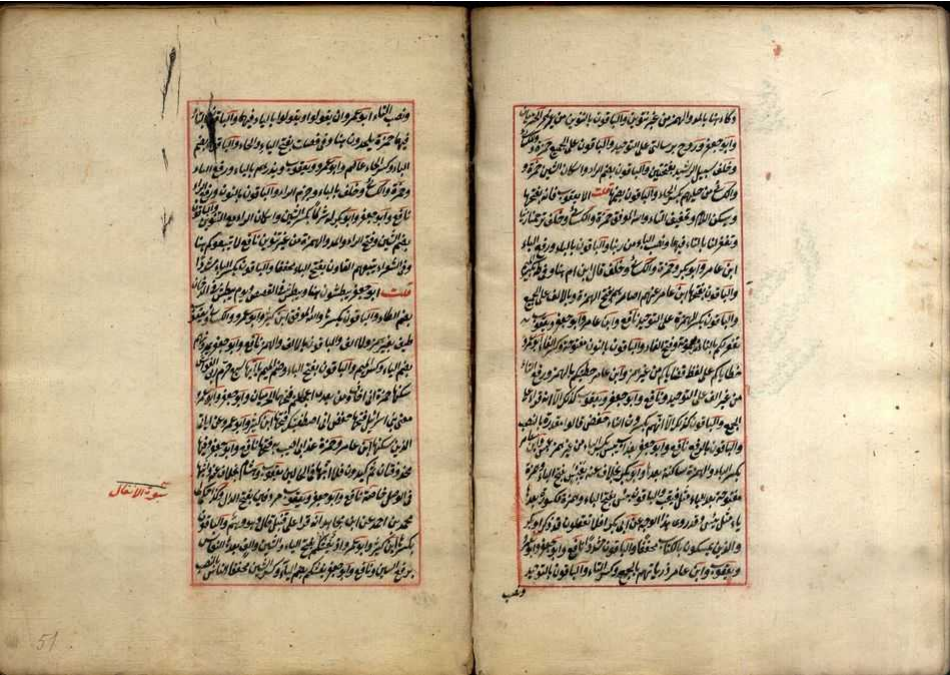 دكاء هنا بالمد والهمز من غير تنوين والباقون بالتنوين من غير همز الحرميان
وابو جعفر وروح برسالتي على التوحيد والباقون على الجمع حمزة والكسائي
وخلف سبيل الرشد بفتحتين والباقون بضم الراء واسكان الشين حمزة
والكسائي من حليهم بكسر الحاء والباقون بضمها قلت الا يعقوب فانه بفتحها
ويسكن اللام وتخفيف الياء والله الموفق حمزة والكسائي وخلف ترحمنا ربنا
وتغفر لنا بالتاء فيهما ونصب الباء من ربنا والباقون بالياء ورفع الباء
ابن عامر وابو بكر وحمزة والكسائي وخلف قال ابن ام هنا وفي طه بكسر الميم
والباقون بفتحها ابن عامر عنهم اصارهم بفتح الهمزة وبالالف على الجمع
والباقون بكسر الهمزة على التوحيد نافع وابن عامر وابو جعفر ويعقوب
تغفر لكم بالتاء مضمومة وفتح الفاء والباقون بالنون مفتوحة وكسر الفاء ابو عمرو
خطاياكم على لفظ قضاياكم من غير همز وابن عامر خطيئتكم بالهمز ورفع التاء
من غير الف على التوحيد ونافع وابو جعفر ويعقوب كذلك الا انه على
الجمع والباقون كذلك الا انهم يكسرون التاء حفص قالوا معذرة بالنصب
والباقون بالرفع نافع وابو جعفر بعذاب بيس بكسر الباء من غير همز وابن عامر
بكسر الباء والهمزة ساكنة بعدها وابو بكر بخلاف عنه بيئس بفتح الباء وهمزة
مفتوحة بعد الياء مثل فيعل والباقون بئيس بفتح الباء وهمزة مكسورة بعدها
ياء مثل رئيس وقد روي هذا الوجه عن ابي بكر افلا تعقلون قد ذكر ابو بكر
والذين يمسكون بالكتاب مخففا والباقون مشددا نافع وابو جعفر وابو عمرو
ويعقوب وابن عامر ذرياتهم بالجمع وكسر التاء والباقون بالتوحيد
ونصب
ونصب التاء ابو عمرو ان يقولوا او يقولوا بالياء فيهما والباقون بالتاء
فيهما حمزة يلحدون هنا وفي فصلت بفتح الياء والحاء والباقون بضم
الياء وكسر الحاء عاصم وابو عمرو ويعقوب ويذرهم بالياء ورفع الراء
وحمزة والكسائي وخلف بالياء وجزم الراء والباقون بالنون ورفع الراء
نافع وابو جعفر وابو بكر له شركا بكسر الشين واسكان الراء مع التنوين والباقون
بضم الشين وفتح الراء والمد والهمزة من غير تنوين نافع لا يتبعوكم هنا
وفي الشعراء يتبعهم الغاون بفتح الباء مخففا والباقون بكسر الباء مشددا
قلت ابو جعفر يبطشون هنا ويبطش في القصص ويوم نبطش في الدخان
بضم الطاء والباقون بكسرها والله الموفق ابن كثير وابو عمرو والكسائي ويعقوب
طيف بغير همز ولا الف والباقون بالالف والهمز نافع وابو جعفر يمدونهم
بضم الياء وكسر الميم والباقون بفتح الياء وضم الميم ياآتها سبع حرم ربي الفواحش
سكنها حمزة اني اخاف من بعدي اعجلتم فتحهما الحرميان وابو عمرو
معي بني اسرائيل فتحها حفص اني اصطفيتك فتحها ابن كثير وابو عمرو عن اياتي
الذين سكنها ابن عامر وحمزة عذابي اصيب به فتحها نافع وابو جعفر وفيها
محذوفتان ثم كيدون فلا اثبتها في الحالين يعقوب وهشام بخلاف عنه واثبتها
في الوصل خاصة نافع وابو جعفر وابو عمرو
سورة الانفال
قرا نافع وابو جعفر ويعقوب مردفين بفتح الدال وكذا حكى
محمد بن احمد عن ابن مجاهد انه قرا على قنبل قال وهو وهم والباقون
بكسرها ابن كثير وابو عمرو اذ يغشاكم بفتح الياء والشين والف بعدها النعاس
برفع السين ونافع وابو جعفر يغشيكم بضم الياء وكسر الشين مخففا النعاس بالنصب
51